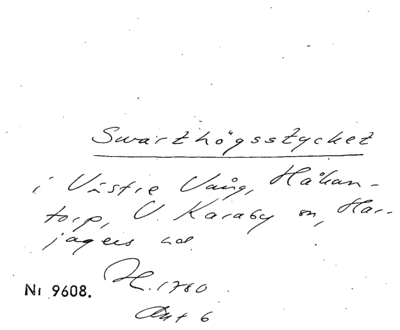 Swarthögsstycket
i Västre Vång, Håkan-
torp, V. Karaby sn, Har-
jagers hd
H. 1780
Akt 6
Nr 9608.